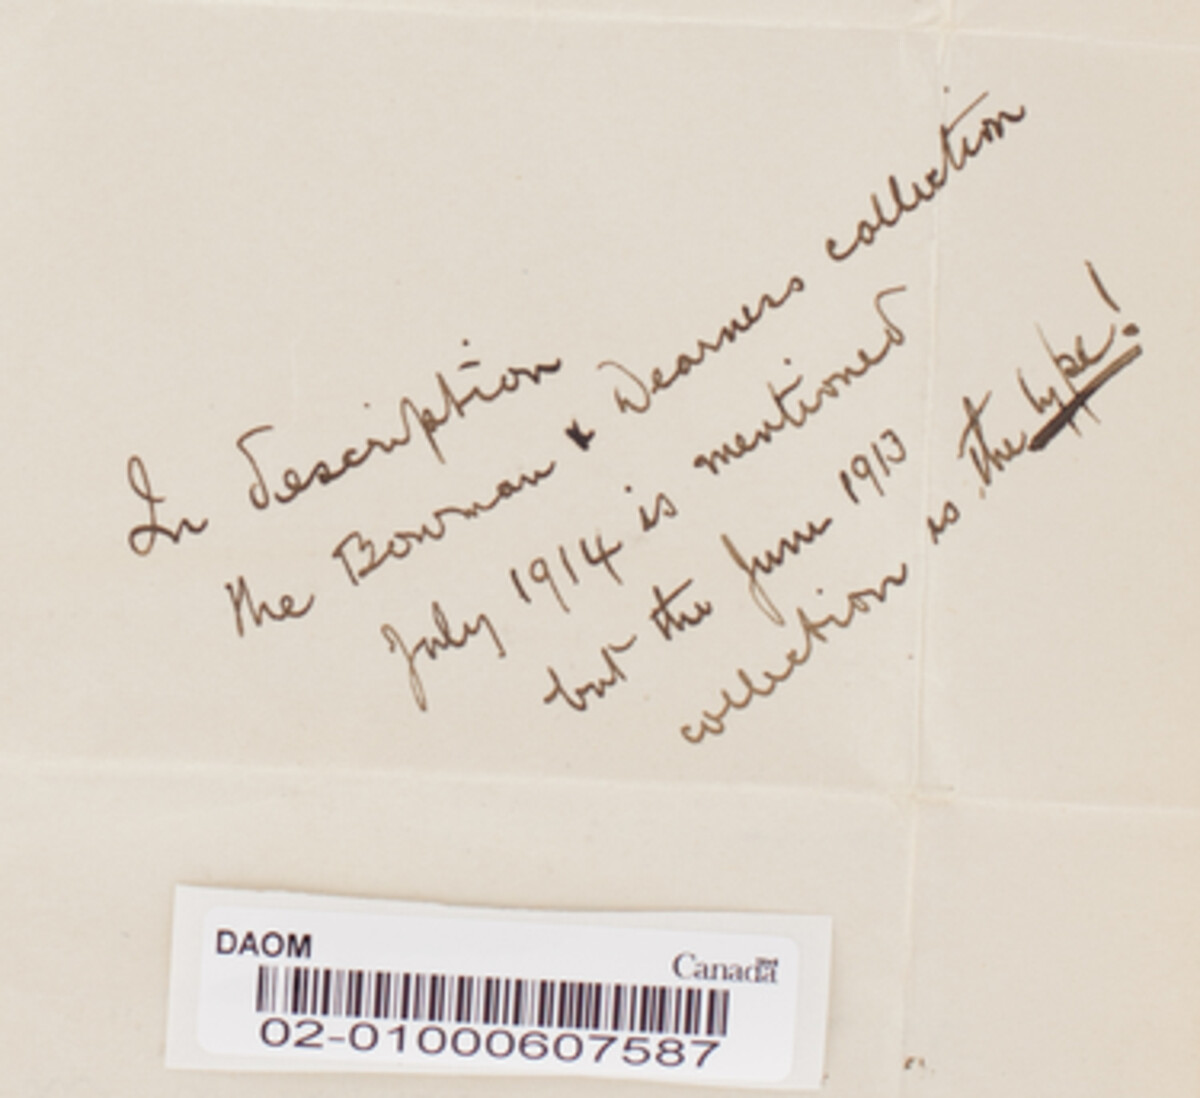 In description
the Bowman & Dearness collection
July 1914 is mentioned
but the June 1913
collection is the type!
DAOM
Canada
02-01000607587